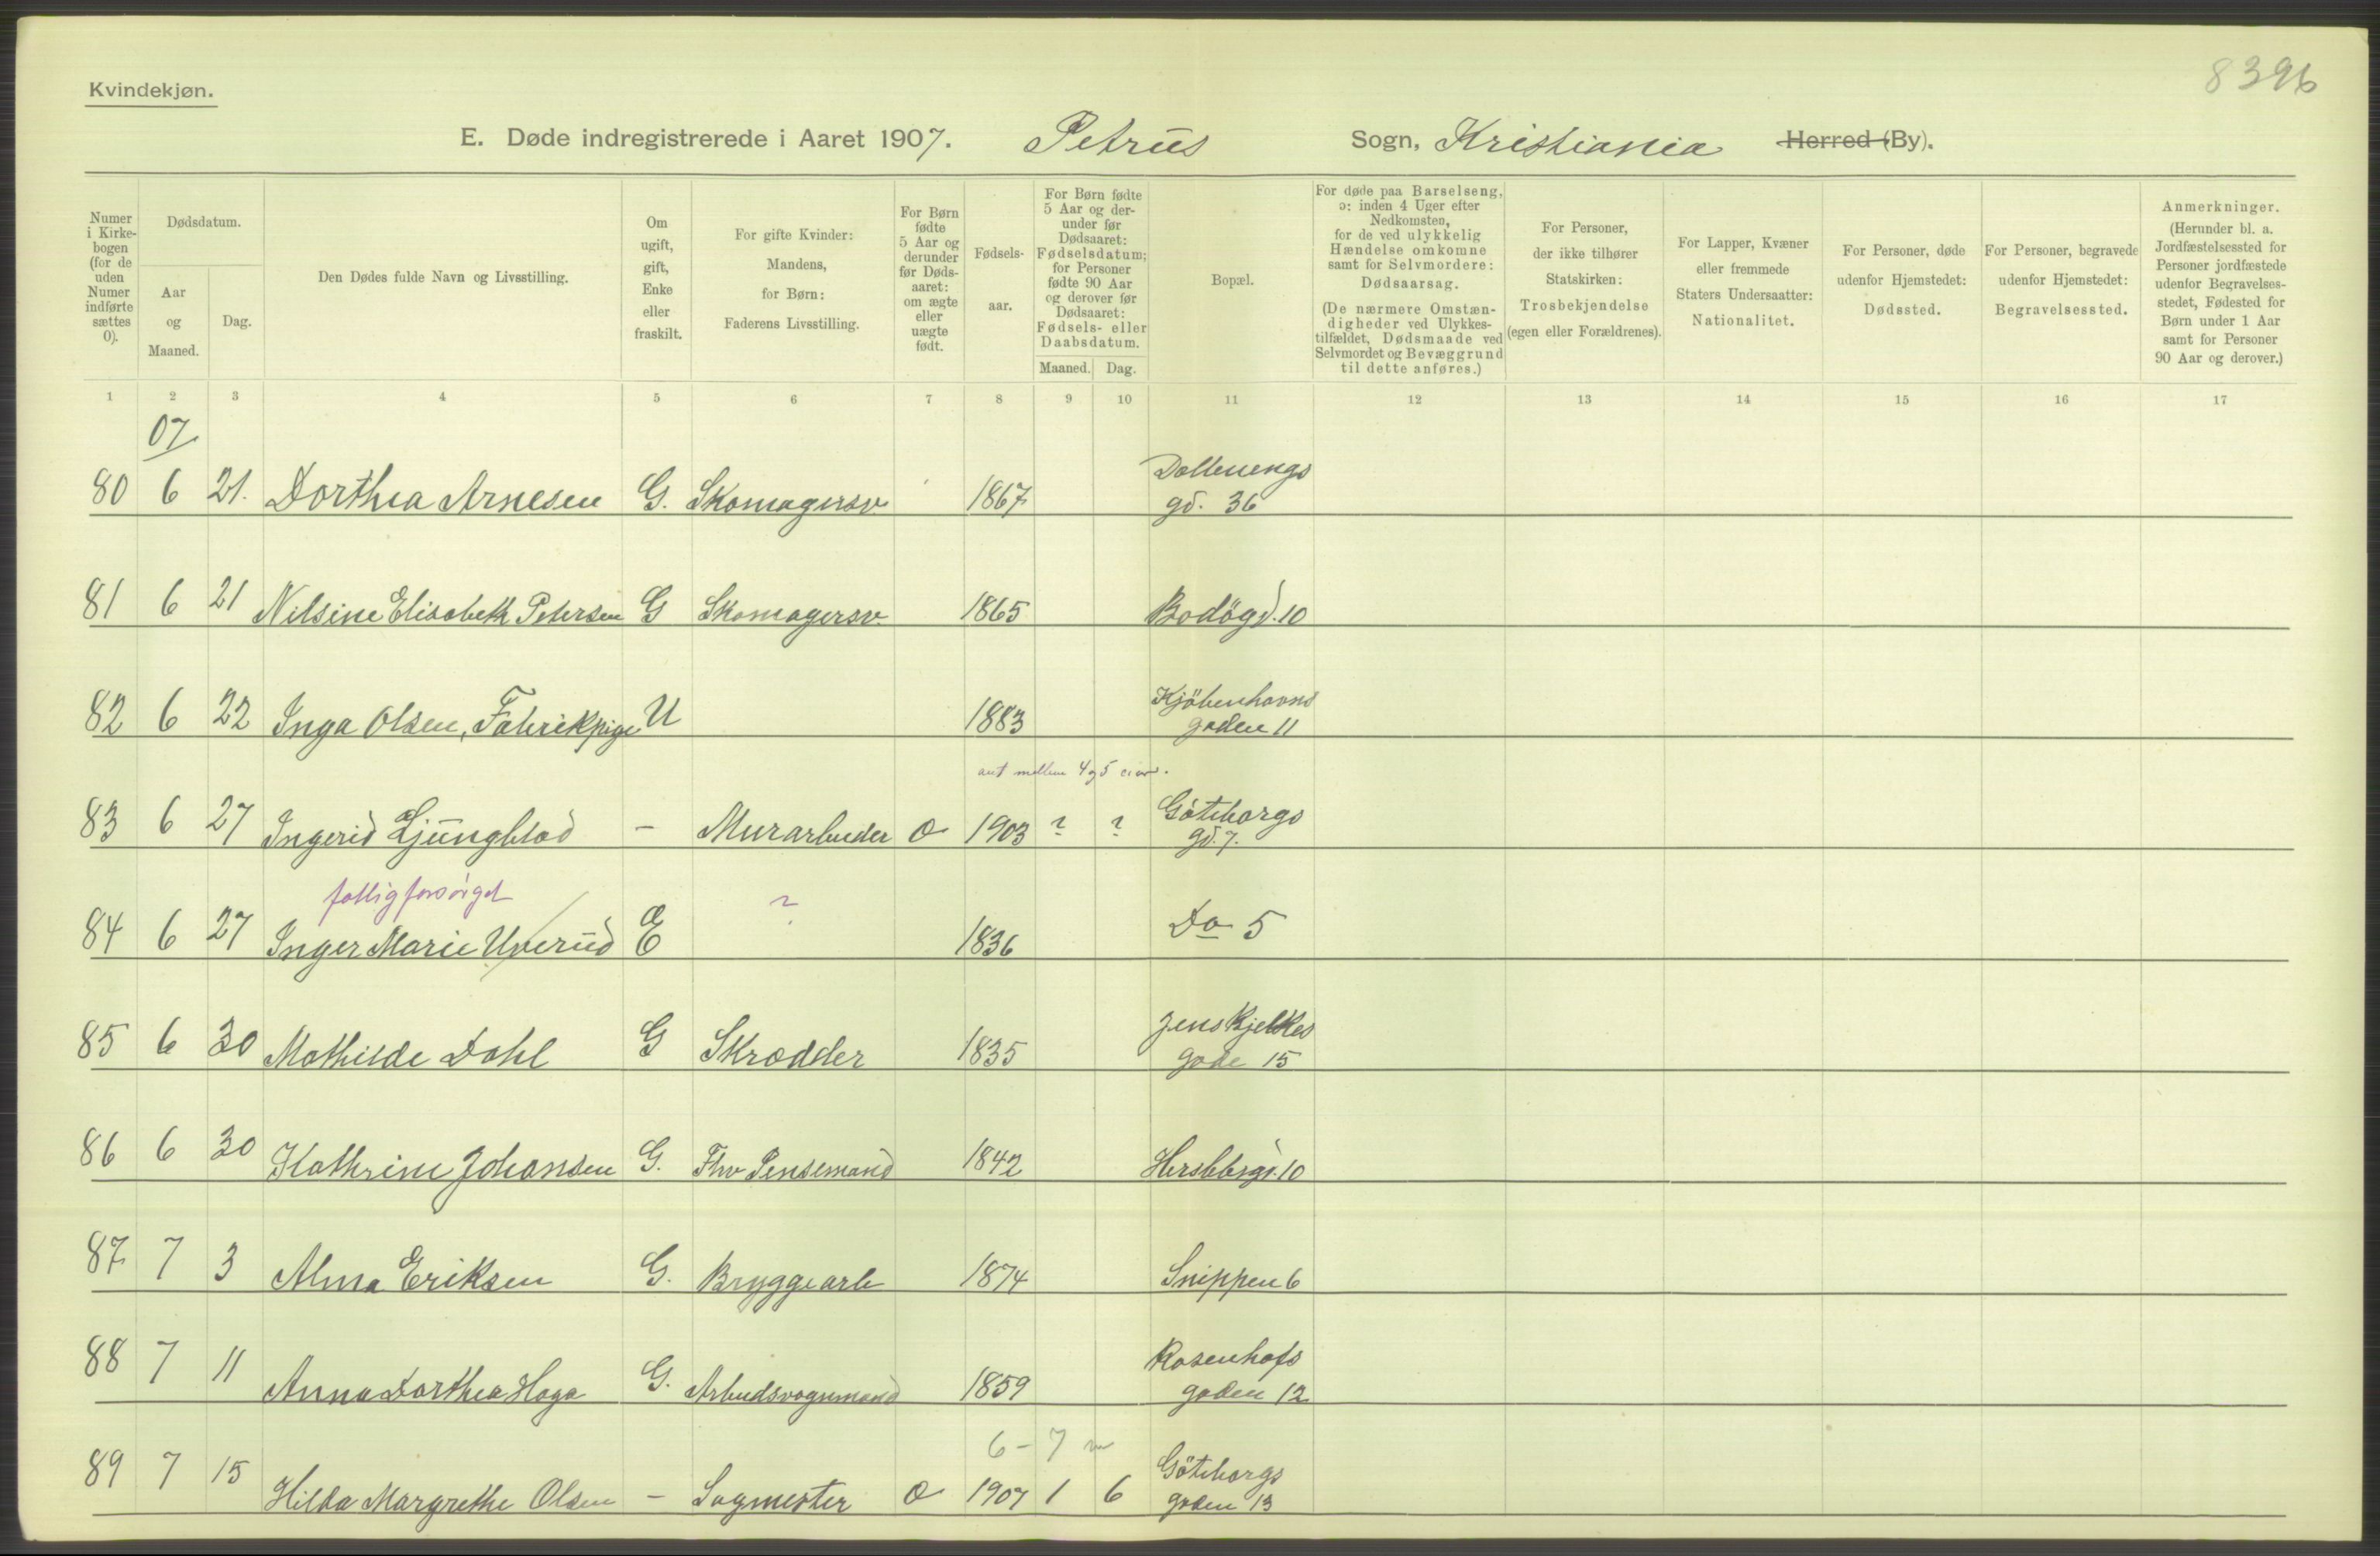 8396
Kvindekjøn.
E. Døde indregistrerede i Aaret 1907. Petrus Sogn, Kristiania Herred (By).
Numer i Kirke-bogen (for de uden Numer indførte sættes 0).
Dødsdatum.
Aar og Maaned.
Dag.
Den Dødes fulde Navn og Livsstilling.
Om ugift, gift, Enke eller fraskilt.
For gifte Kvinder: Mandens, for Børn: Faderens Livsstilling.
For Børn fødte 5 Aar og derunder før Døds-aaret: om ægte eller uægte født.
Fødsels-aar.
For Børn fødte 5 Aar og der-under før Dødsaaret: Fødselsdatum; for Personer fødte 90 Aar og derover før Dødsaaret: Fødsels- eller Daabsdatum.
Maaned. Dag.
Bopæl.
For døde paa Barselseng, ɔ: inden 4 Uger efter Nedkomsten, for de ved ulykkelig Hændelse omkomne samt for Selvmordere: Dødsaarsag.
(De nærmere Omstæn-digheder ved Ulykkes-tilfældet, Dødsmaade ved Selvmordet og Bevæggrund til dette anføres.)
For Personer, der ikke tilhører Statskirken: Trosbekjendelse (egen eller Forældrenes).
For Lapper, Kvæner eller fremmede Staters Undersaatter: Nationalitet.
For Personer, døde udenfor Hjemstedet: Dødssted.
For Personer, begravede udenfor Hjemstedet: Begravelsessted.
Anmerkninger. (Herunder bl. a. Jordfæstelsessted for Personer jordfæstede udenfor Begravelses-stedet, Fødested for Børn under 1 Aar samt for Personer 90 Aar og derover.)
1 2 3 4 5 6 7 8 9 10 11 12 13 14 15 16 17
07
80 6 21. Dorthea Arnesen G. Skomagersv 1867 Dællenengs
gd. 36
81 6 21 Nilsine Elisabeth Petersen G Skomagersv. 1865 Bodögd. 10
82 6 22 Inga Olsen, Fabrikpige U 1883 Kjöbenhavns
gaden 11
ant mellem 4 og 5 aar.
83 6 27 Ingerid Ljungblad - Murarbeider 1903 ? ? Göteborgs
gd. 7.
fattigforsörget
84 6 27 Inger Marie Uverud E ? 1836 Do 5
85 6 30 Mathilde Dahl G Skrædder 1835 Jens Bjelkes
gade 15
86 6 30 Kathrine Johansen G. Fhv Pensemand 1842 Herslebsgd. 10
87 7 3 Alma Eriksen G. Bryggearb 1874 Snippen 6
88 7 11 Anna Dorthea Haga G. Arbeidsvognmand 1859 Rosenhofs
gaden 12
6 - 7 m
89 7 15 Hilda Margrethe Olsen - Sagmester 1907 1 6 Göteborgs
gaden 13